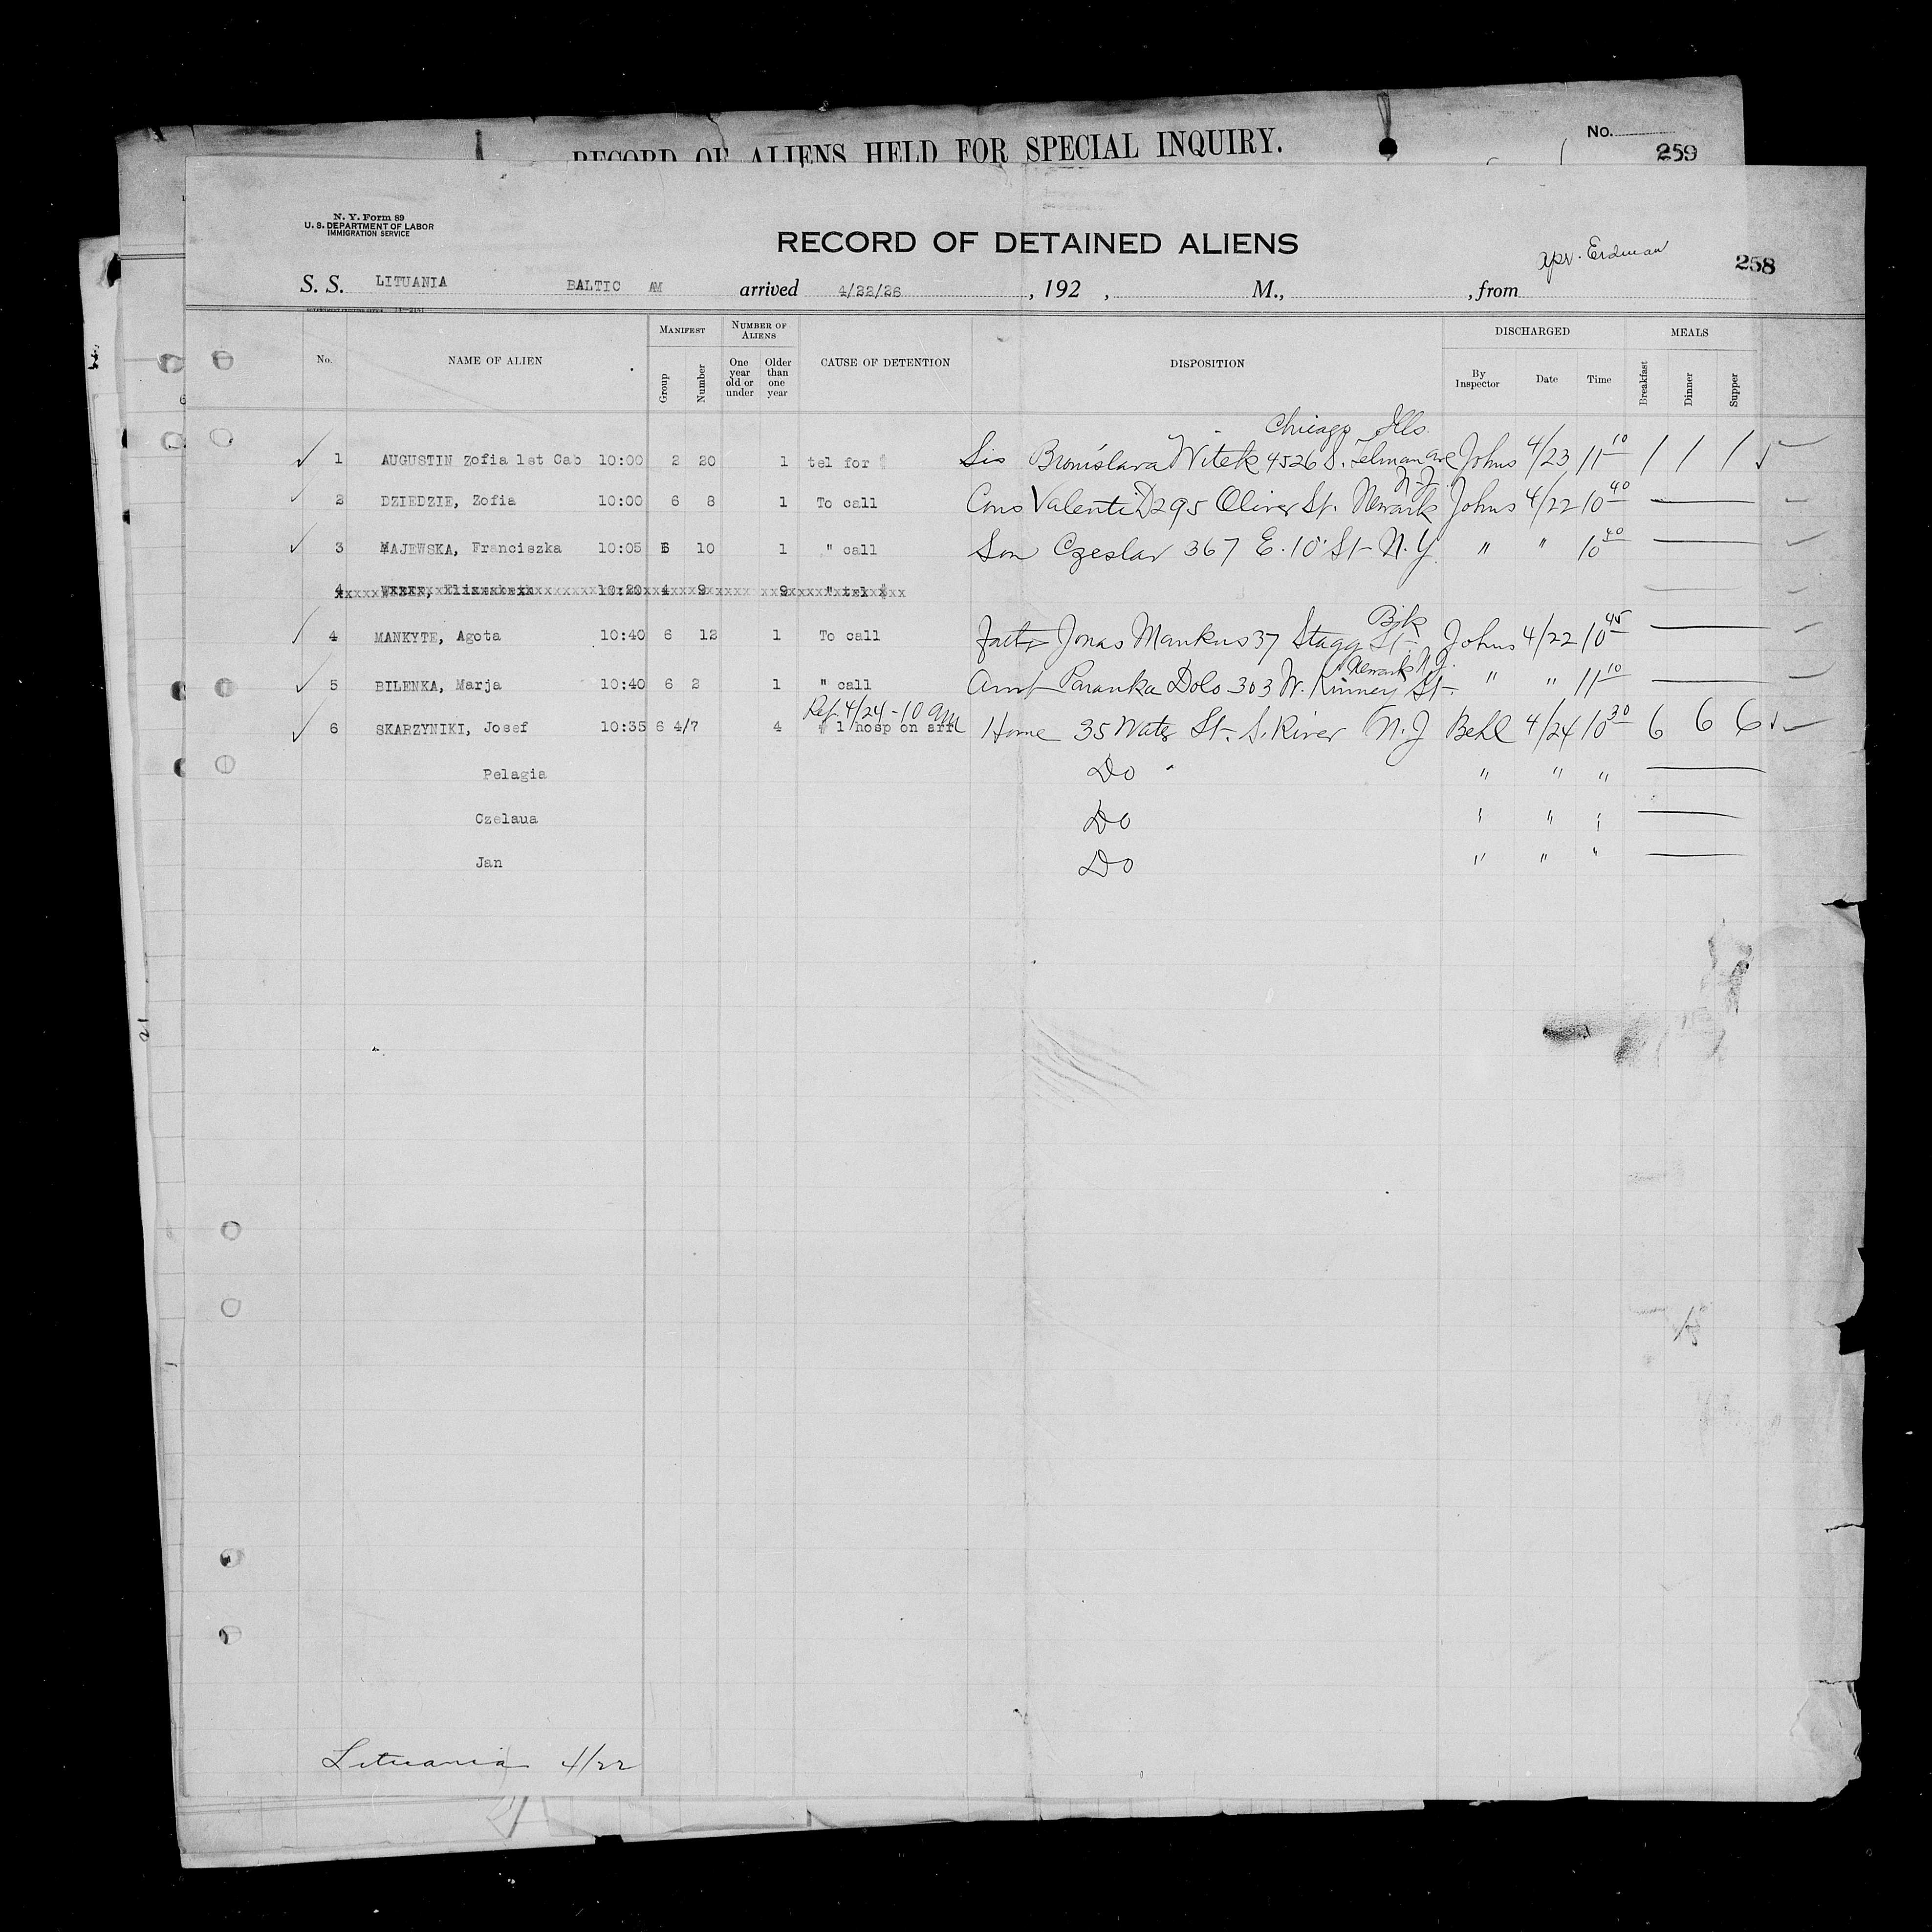 RECORD OF ALIENS HELD FOR SPECIAL INQUIRY.
No.
259
N. Y. Form 89
U. S. DEPARTMENT OF LABOR
IMMIGRATION SERVICE
RECORD OF DETAINED ALIENS
Erdman
258
S. S. LITUANIA BALTIC AM arrived 4/22/26, 192 , M., , from
No. NAME OF ALIEN MANIFEST Group Number NUMBER OF ALIENS One year old or under Older than one year CAUSE OF DETENTION DISPOSITION DISCHARGED By Inspector Date Time MEALS Breakfast Dinner Supper
Chicago Ills
1 AUGUSTIN Zofia 1st Cab 10:00 2 20 1 tel for $ Sis Bronislava Witek 4526 S. Telman ave Johns 4/23 11 10 1 1 1
N.J.
2 DZIEDZIE, Zofia 10:00 6 8 1 To call Cous Valenti D 295 Oliver St. Newark Johns 4/22 10 40
3 MAJEWSKA, Franciszka 10:05 6 10 1 " call Son Czeslav 367 E. 10" St- N.Y. " " 10 40
4 Elizabeth 10:20 4 9 9 " tel $
Bjk
4 MANKYTE, Agota 10:40 6 12 1 To call Jonas Mankus 37 Stagg St- Johns 4/22 10 45
Newark N.J.
5 BILENKA, Marja 10:40 6 2 1 " call Aunt Paranka Dolo 303 W. Kinney St- " " 11 10
Ref. 4/24 - 10 am
6 SKARZYNIKI, Josef 10:35 6 4/7 4 1 hosp on arrl Home 35 Water St. S. River N.J Behl 4/24 10 30 6 6 6
Pelagia Do " " "
Czelaua Do " " "
Jan Do " " "
Lituania 4/22